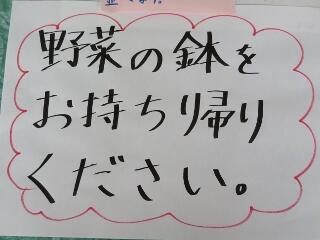 野菜の鉢を
お持ち帰り
ください。